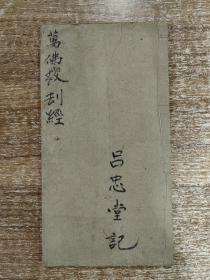 萬佛救刦經
呂忠堂記